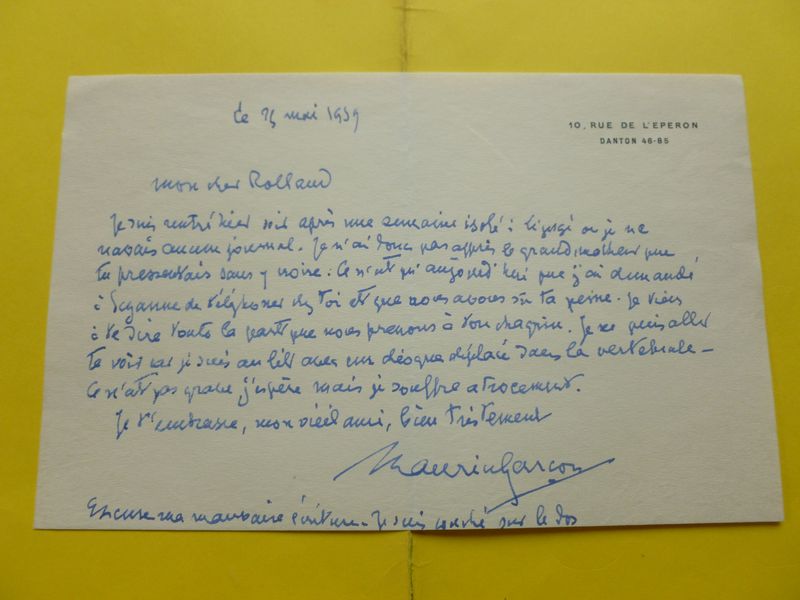 le 25 mai 1959
10, RUE DE L'EPERON
DANTON 46-85
mon cher Rolland
Je suis rentré hier soir après une semaine isolé à où je ne
navais aucun journal. Je n'ai donc pas appris le grand malheur que
tu pressentais sans y croire. Ce n'est qu'aujourd'hui que j'ai demandé
à Suzanne de téléphoner chez toi et que nous avons su ta peine. Je viens
à te dire toute la part que nous prenons à ton chagrin. Je ne puis aller
te voir car je suis au lit avec un disque déplacé dans la vertébrale –
Ce n'est pas grave j'espère mais je souffre atrocement.
Je t'embrasse, mon vieil ami, bien tristement
Maurice Garçon
Excuse ma mauvaise écriture – Je suis couché sur le dos